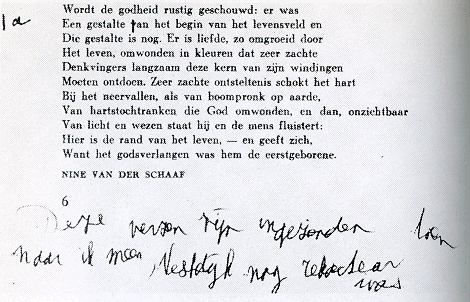 Wordt de godheid rustig geschouwd: er was
1a Een gestalte aan het begin van het levensveld en
Die gestalte is nog. Er is liefde, zo omgroeid door
Het leven, omwonden in kleuren dat zeer zachte
Denkvingers langzaam deze kern van zijn windingen
Moeten ontdoen. Zeer zachte ontsteltenis schokt het hart
Bij het neervallen, als van boompronk op aarde,
Van hartstochtranken die God omwonden, en dan, onzichtbaar
Van licht en wezen staat hij en de mens fluistert:
Hier is de rand van het leven, — en geeft zich,
Want het godsverlangen was hem de eerstgeborene.
NINE VAN DER SCHAAF
6
Deze verzen zijn ingezonden toen
naar ik meen, Vestdijk nog redacteur
was